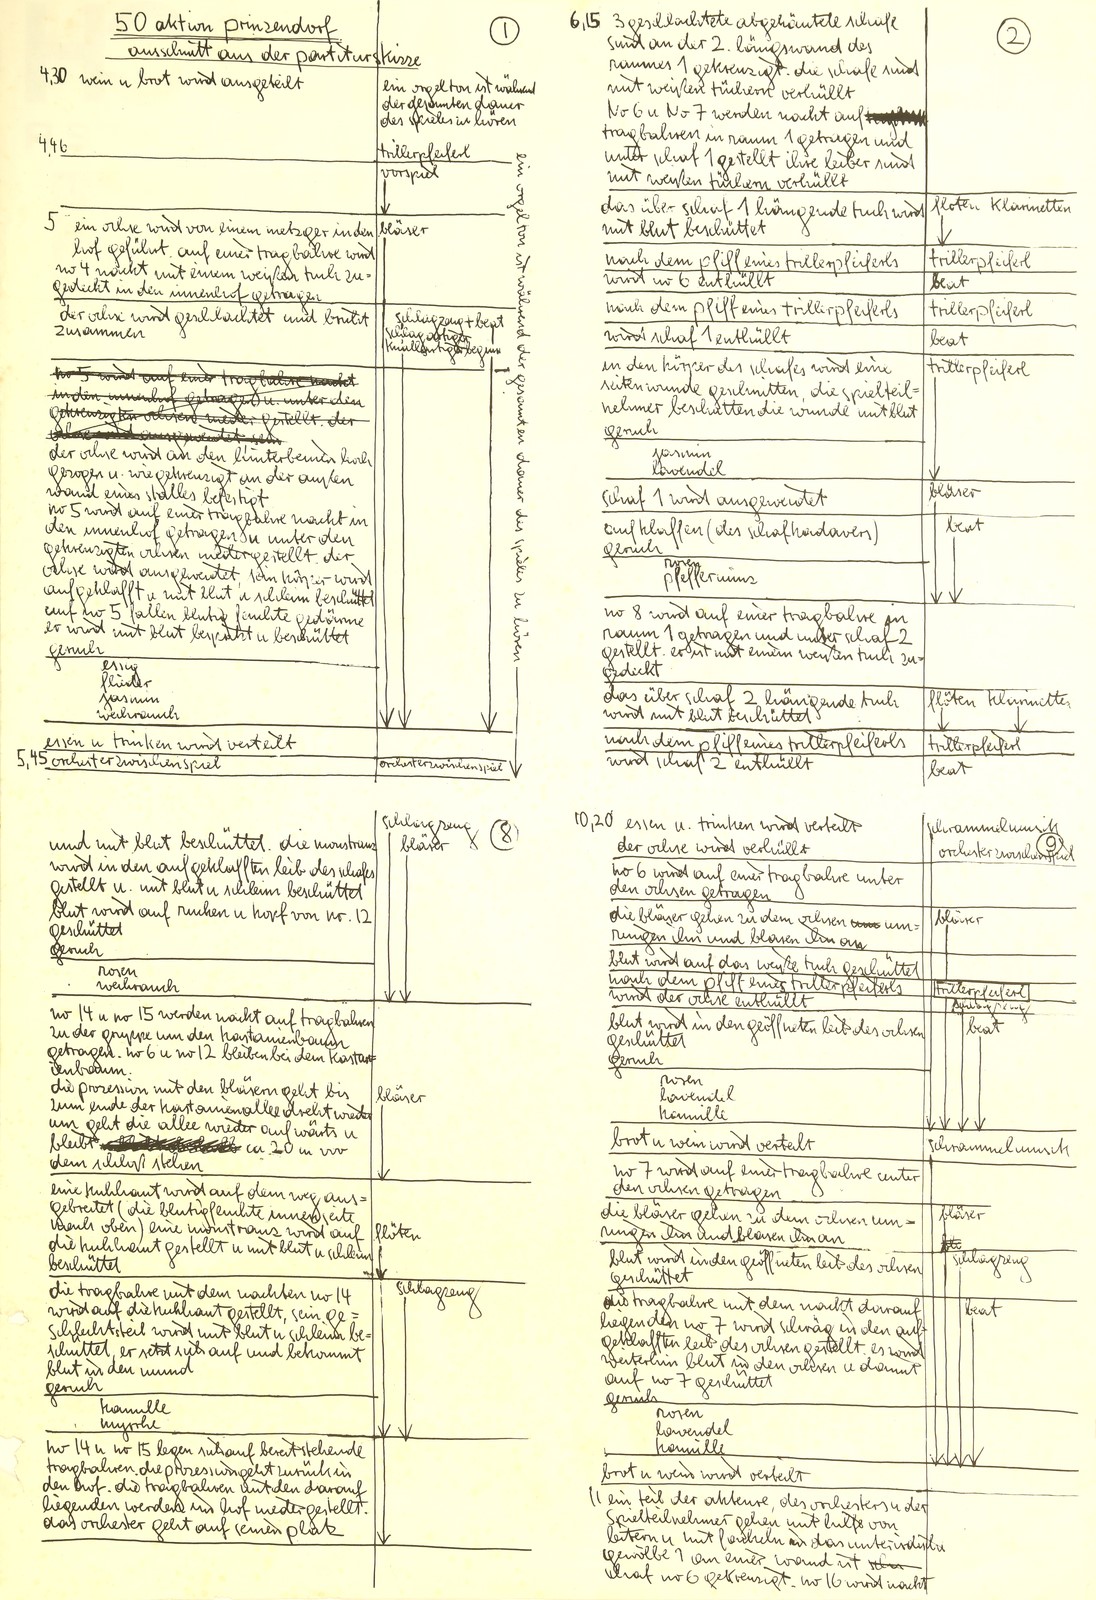 50 aktion prinzendorf
ausschnitt aus der partiturskizze
1
4,30 wein u brot wird ausgeteilt
ein orgelton ist während
der gesamten dauer
des spieles zu hören
4,46
trillerpfeiferl
vorspiel
5 ein ochse wird von einem metzger in den
hof geführt. auf einer tragbahre wird
no 4 nackt mit einem weißen tuch zu=
gedeckt in den innenhof getragen
bläser
der ochse wird geschlachtet und bricht
zusammen
schlagzeug + beat
schlagartiger
knallartiger beginn
no 5 wird auf einer tragbahre nackt
in den innenhof getragen u. unter dem
gekreuzigten ochsen nieder gestellt. der
ochse wird ausgeweidet. sein
der ochse wird an den hinterbeinen hoch
gezogen u. wie gekreuzigt an der außen
wand eines stalles befestigt
no 5 wird auf einer tragbahre nackt in
den innenhof getragen u unter den
gekreuzigten ochsen niedergestellt. der
ochse wird ausgeweidet, sein körper wird
aufgeklafft u mit blut u schleim beschüttet
auf no 5 fallen blutig feuchte gedärme
er wird mit blut bespritzt u beschüttet
geruch
essig
flieder
jasmin
weihrauch
essen u trinken wird verteilt
5,45 orchesterzwischenspiel
orchesterzwischenspiel
ein orgelton ist während der gesamten dauer des spieles zu hören
2
6,15 3 geschlachtete abgehäutete schafe
sind an der 2. längswand des
raumes 1 gekreuzigt. die schafe sind
mit weißen tüchern verhüllt
No 6 u No 7 werden nackt auf
tragbahren in raum 1 getragen und
unter schaf 1 gestellt ihre leiber sind
mit weißen tüchern verhüllt
das über schaf 1 hängende tuch wird
mit blut beschüttet
flöten klarinetten
nach dem pfiff eines trillerpfeiferls
trillerpfeiferl
wird no 6 enthüllt
beat
nach dem pfiff eines trillerpfeiferls
trillerpfeiferl
wird schaf 1 enthüllt
beat
in den körper des schafes wird eine
seitenwunde geschnitten, die spielteil=
nehmer beschütten die wunde mit blut
geruch
trillerpfeiferl
jasmin
lavendel
schaf 1 wird ausgeweidet
bläser
aufklaffen (des schafkadavers)
geruch
beat
rosen
pfefferminz
no 8 wird auf einer tragbahre in
raum 1 getragen und unter schaf 2
gestellt. er ist mit einem weißen tuch zu=
gedeckt
das über schaf 2 hängende tuch
wird mit blut beschüttet
flöten klarinetten
nach dem pfiff eines trillerpfeiferls
trillerpfeiferl
wird schaf 2 enthüllt
beat
8
und mit blut beschüttet. die monstranz
wird in den aufgeklafften leib des schafes
gestellt u. mit blut u schleim beschüttet
blut wird auf rücken u kopf von nr. 12
geschüttet
geruch
schlagzeug
bläser
rosen
weihrauch
no 14 u no 15 werden nackt auf tragbahren
zu der gruppe um den kastanienbaum
getragen. no 6 u no 12 bleiben bei dem kastan=
ienbaum.
die prozession mit den bläsern geht bis
zum ende der kastanienallee dreht wieder
um geht die allee wieder aufwärts u
bleibt ca. 20 m vor
dem schloß stehen
bläser
eine kuhhaut wird auf dem weg aus=
gebreitet (die blutigfeuchte innenseite
nach oben) eine monstranz wird auf
die kuhhaut gestellt u mit blut u schleim
beschüttet
flöten
die tragbahre mit dem nackten no 14
wird auf die kuhhaut gestellt, sein ge=
schlechtsteil wird mit blut u schleim be=
schüttet, er setzt sich auf und bekommt
blut in den mund
geruch
schlagzeug
kamille
myrrhe
no 14 u no 15 legen sich auf bereit stehende
tragbahren. die prozession geht zurück in
den hof. die tragbahren mit den darauf
liegenden werden im hof niedergestellt.
das orchester geht auf seinen platz
9
10,20 essen u. trinken wird verteilt
der ochse wird verhüllt
schrammelmusik
orchesterzwischenspiel
no 6 wird auf einer tragbahre unter
den ochsen getragen
die bläser gehen zu dem ochsen um=
ringen ihn und blasen ihn an
bläser
blut wird auf das weiße tuch geschüttet
nach dem pfiff eines trillerpfeiferls
wird der ochse enthüllt
trillerpfeiferl
schlagzeug
blut wird in den geöffneten leib des ochsen
geschüttet
geruch
beat
rosen
lavendel
kamille
brot u wein wird verteilt
schrammelmusik
no 7 wird auf einer tragbahre unter
den ochsen getragen
die bläser gehen zu dem ochsen um=
ringen ihn und blasen ihn an
bläser
blut wird in den geöffneten leib des ochsen
geschüttet
schlagzeug
die tragbahre mit dem nackt darauf
liegenden no 7 wird schräg in den auf=
geklafften leib des ochsen gestellt. es wird
weiterhin blut in den ochsen u damit
auf no 7 geschüttet
geruch
beat
rosen
lavendel
kamille
brot u wein wird verteilt
11 ein teil der akteure, des orchesters u der
spielteilnehmer gehen mit hilfe von
leitern u mit fackeln in das unterirdische
gewölbe 1 an einer wand ist
schaf no 6 gekreuzigt. no 16 wird nackt